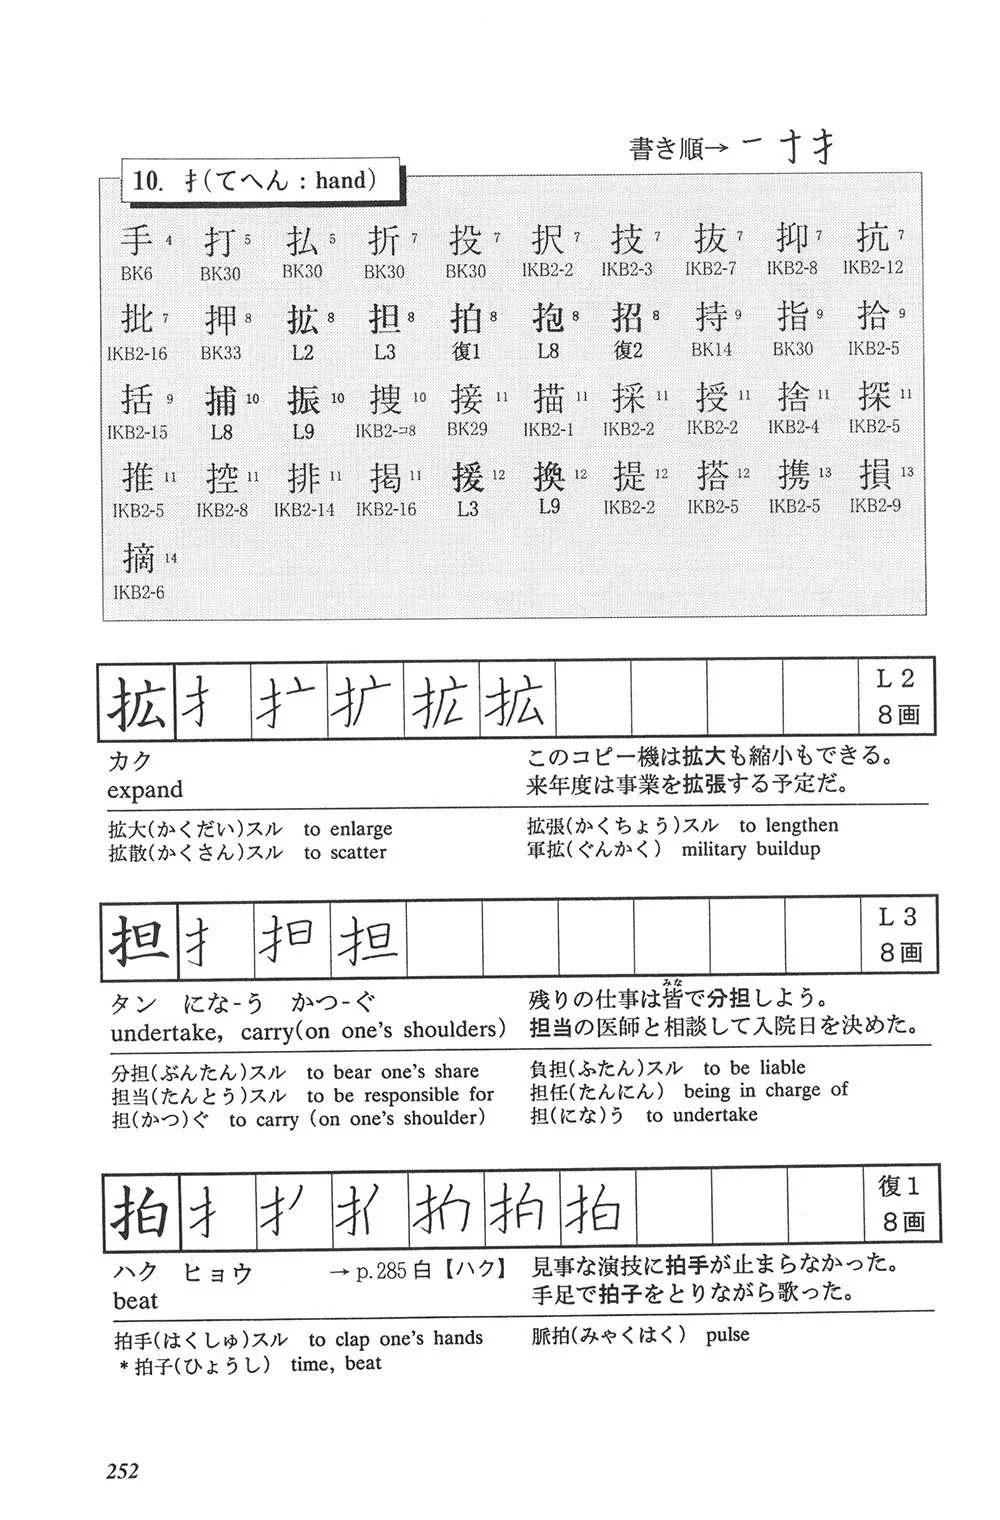 書き順→ 一 十 扌
10. 扌(てへん : hand)
手 4 打 5 払 5 折 7 投 7 択 7 技 7 抜 7 抑 7 抗 7
BK6 BK30 BK30 BK30 BK30 IKB2-2 IKB2-3 IKB2-7 IKB2-8 IKB2-12
批 7 押 8 拡 8 担 8 拍 8 抱 8 招 8 持 9 指 9 拾 9
IKB2-16 BK33 L2 L3 復1 L8 復2 BK14 BK30 IKB2-5
括 9 捕 10 振 10 捜 10 接 11 描 11 採 11 授 11 捨 11 探 11
IKB2-15 L8 L9 IKB2-コ8 BK29 IKB2-1 IKB2-2 IKB2-2 IKB2-4 IKB2-5
推 11 控 11 排 11 掲 11 援 12 換 12 提 12 搭 12 携 13 損 13
IKB2-5 IKB2-8 IKB2-14 IKB2-16 L3 L9 IKB2-2 IKB2-5 IKB2-5 IKB2-9
摘 14
IKB2-6
拡 扌 拡 L2
8画
カク
expand
このコピー機は拡大も縮小もできる。
来年度は事業を拡張する予定だ。
拡大(かくだい)スル to enlarge
拡散(かくさん)スル to scatter
拡張(かくちょう)スル to lengthen
軍拡(ぐんかく) military buildup
担 扌 担 L3
8画
タン にな-う かつ-ぐ
undertake, carry(on one's shoulders)
残りの仕事は皆(みな)で分担しよう。
担当の医師と相談して入院日を決めた。
分担(ぶんたん)スル to bear one's share
担当(たんとう)スル to be responsible for
担(かつ)ぐ to carry (on one's shoulder)
負担(ふたん)スル to be liable
担任(たんにん) being in charge of
担(にな)う to undertake
拍 扌 拍 復1
8画
ハク ヒョウ → p.285 白【ハク】
beat
見事な演技に拍手が止まらなかった。
手足で拍子をとりながら歌った。
拍手(はくしゅ)スル to clap one's hands
*拍子(ひょうし) time, beat
脈拍(みゃくはく) pulse
252